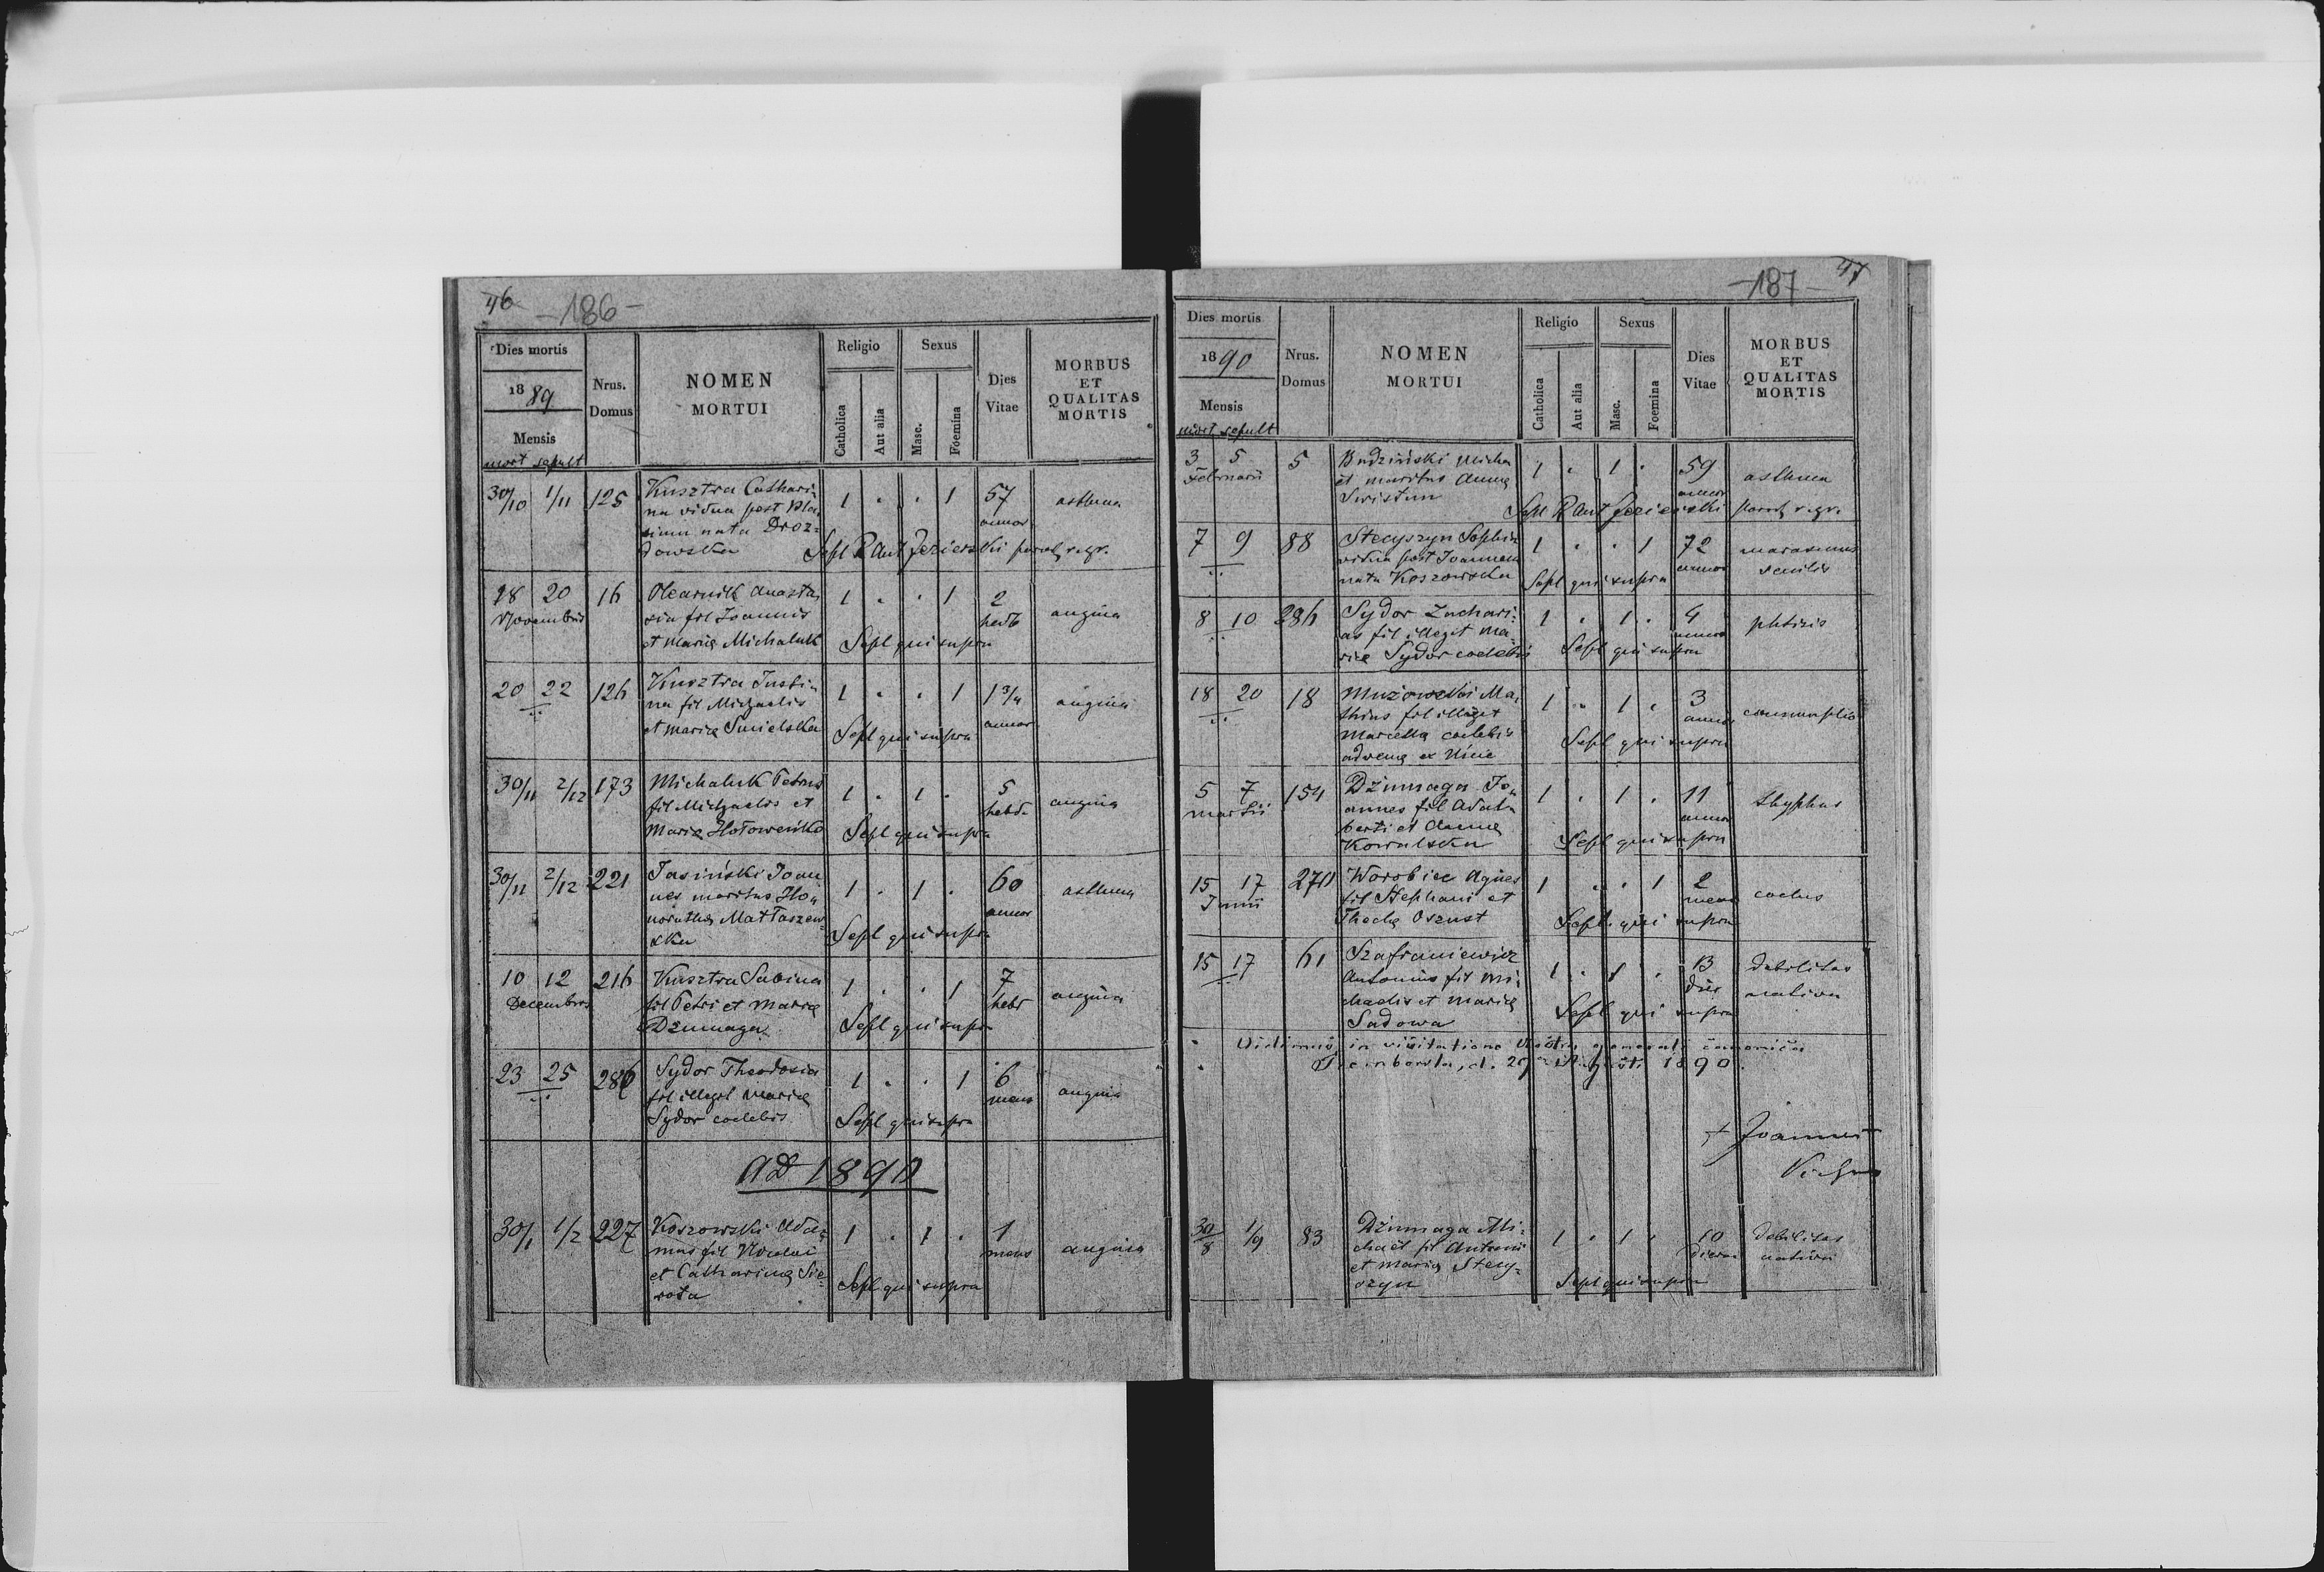 46 -186-
Dies mortis
1889
Mensis
mort sepult
Nrus. Domus
NOMEN MORTUI
Religio
Catholica
Aut alia
Sexus
Masc.
Foemina
Dies Vitae
MORBUS ET QUALITAS MORTIS
30/10 1/11 125 Kusztra Cathari- 1 . . 1 57 asthma
na vidua post Bla- annor
sium nata Droz=
dowska Sepl R Ant Jezierski paroch r. gr.
18 20 16 Olearnik Anasta- 1 . . 1 2 angina
Novembris sia fil Joannis hebd
et Mariæ Michaluk Sepl qui supra
20 22 126 Kusztra Justi- 1 . . 1 1 3/4 angina
na fil Michaelis annor
et Mariæ Smielska Sepl qui supra
30/11 2/12 173 Michaluk Petrus 1 . 1 . 5 angina
fil Michaelis et hebd.
Mariæ Hołoweńko Sepl qui supra
30/11 2/12 221 Jasiński Joan- 1 . 1 . 60 asthma
nes maritus Ho- annor
noratha Matłaszew-
ska Sepl qui supra
10 12 216 Kusztra Sabina 1 . . 1 7 angina
Decembris fil Petri et Mariæ hebd
Dzumaga Sepl qui supra
23 25 286 Sydor Theodosia 1 . . 1 6 angina
fil illegit Mariæ mens
Sydor coelebis Sepl qui supra
AD 1890
30/1 1/2 227 Koszowski Ada- 1 . 1 . 1 angina
mus fil Nicolai mens
et Catharinæ Sie-
rota Sepl qui supra
-187- 47
Dies mortis
1890
Mensis
mort sepult
Nrus. Domus
NOMEN MORTUI
Religio
Catholica
Aut alia
Sexus
Masc.
Foemina
Dies Vitae
MORBUS ET QUALITAS MORTIS
3 5 5 Budziński Micha 1 . 1 . 59 asthma
Februarii ël maritus Annæ annor
Swistun Sepl R Ant Jezierski paroch r. gr.
7 9 88 Stecyszyn Sophia 1 . . 1 72 marasmus
vidua post Joannem annor senilis
nata Koszowska Sepl qui supra
8 10 286 Sydor Zachari- 1 . 1 . 4 phtisis
as fil illegit Ma- annor
riæ Sydor coelebis Sepl qui supra
18 20 18 Mużowski Ma- 1 . 1 . 3 consumptio
thias fil illegit annor
Marcella coelebis Sepl qui supra
advena ex
5 7 154 Dżumaga Jo- 1 . 1 . 11 thyphus
Martii annes fil Adal- annor
berti et Annæ
Kowalska Sepl qui supra
15 17 270 Worobiec Agnes 1 . . 1 2
Junii fil Stephani et mens
Theclæ Oszust Sepl. qui supra
15 17 61 Szafraniewicz 1 . 1 . 13 debilitas
Antonius fil Mi- dies nativa
chaelis et Mariæ Sepl qui supra
Sadowa
Vidimus in visitatione Nostra generali canonica
Trembowla, d. 29 Augusti 1890.
+ Joannes
30/8 1/9 83 Dżumaga Mi- 1 . 1 . 10 debilitas
chaël fil Antonii dierum nativa
et Mariæ Stecy-
szyn Sepl qui supra